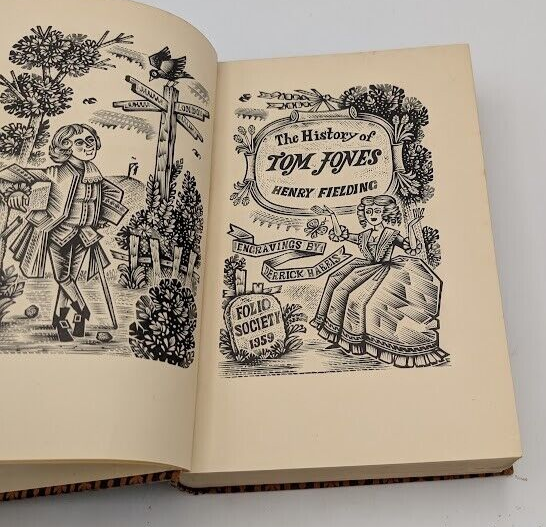 LONDON
The History of
TOM JONES
HENRY FIELDING
ENGRAVINGS BY
DERRICK HARRIS
FOLIO
SOCIETY
1959